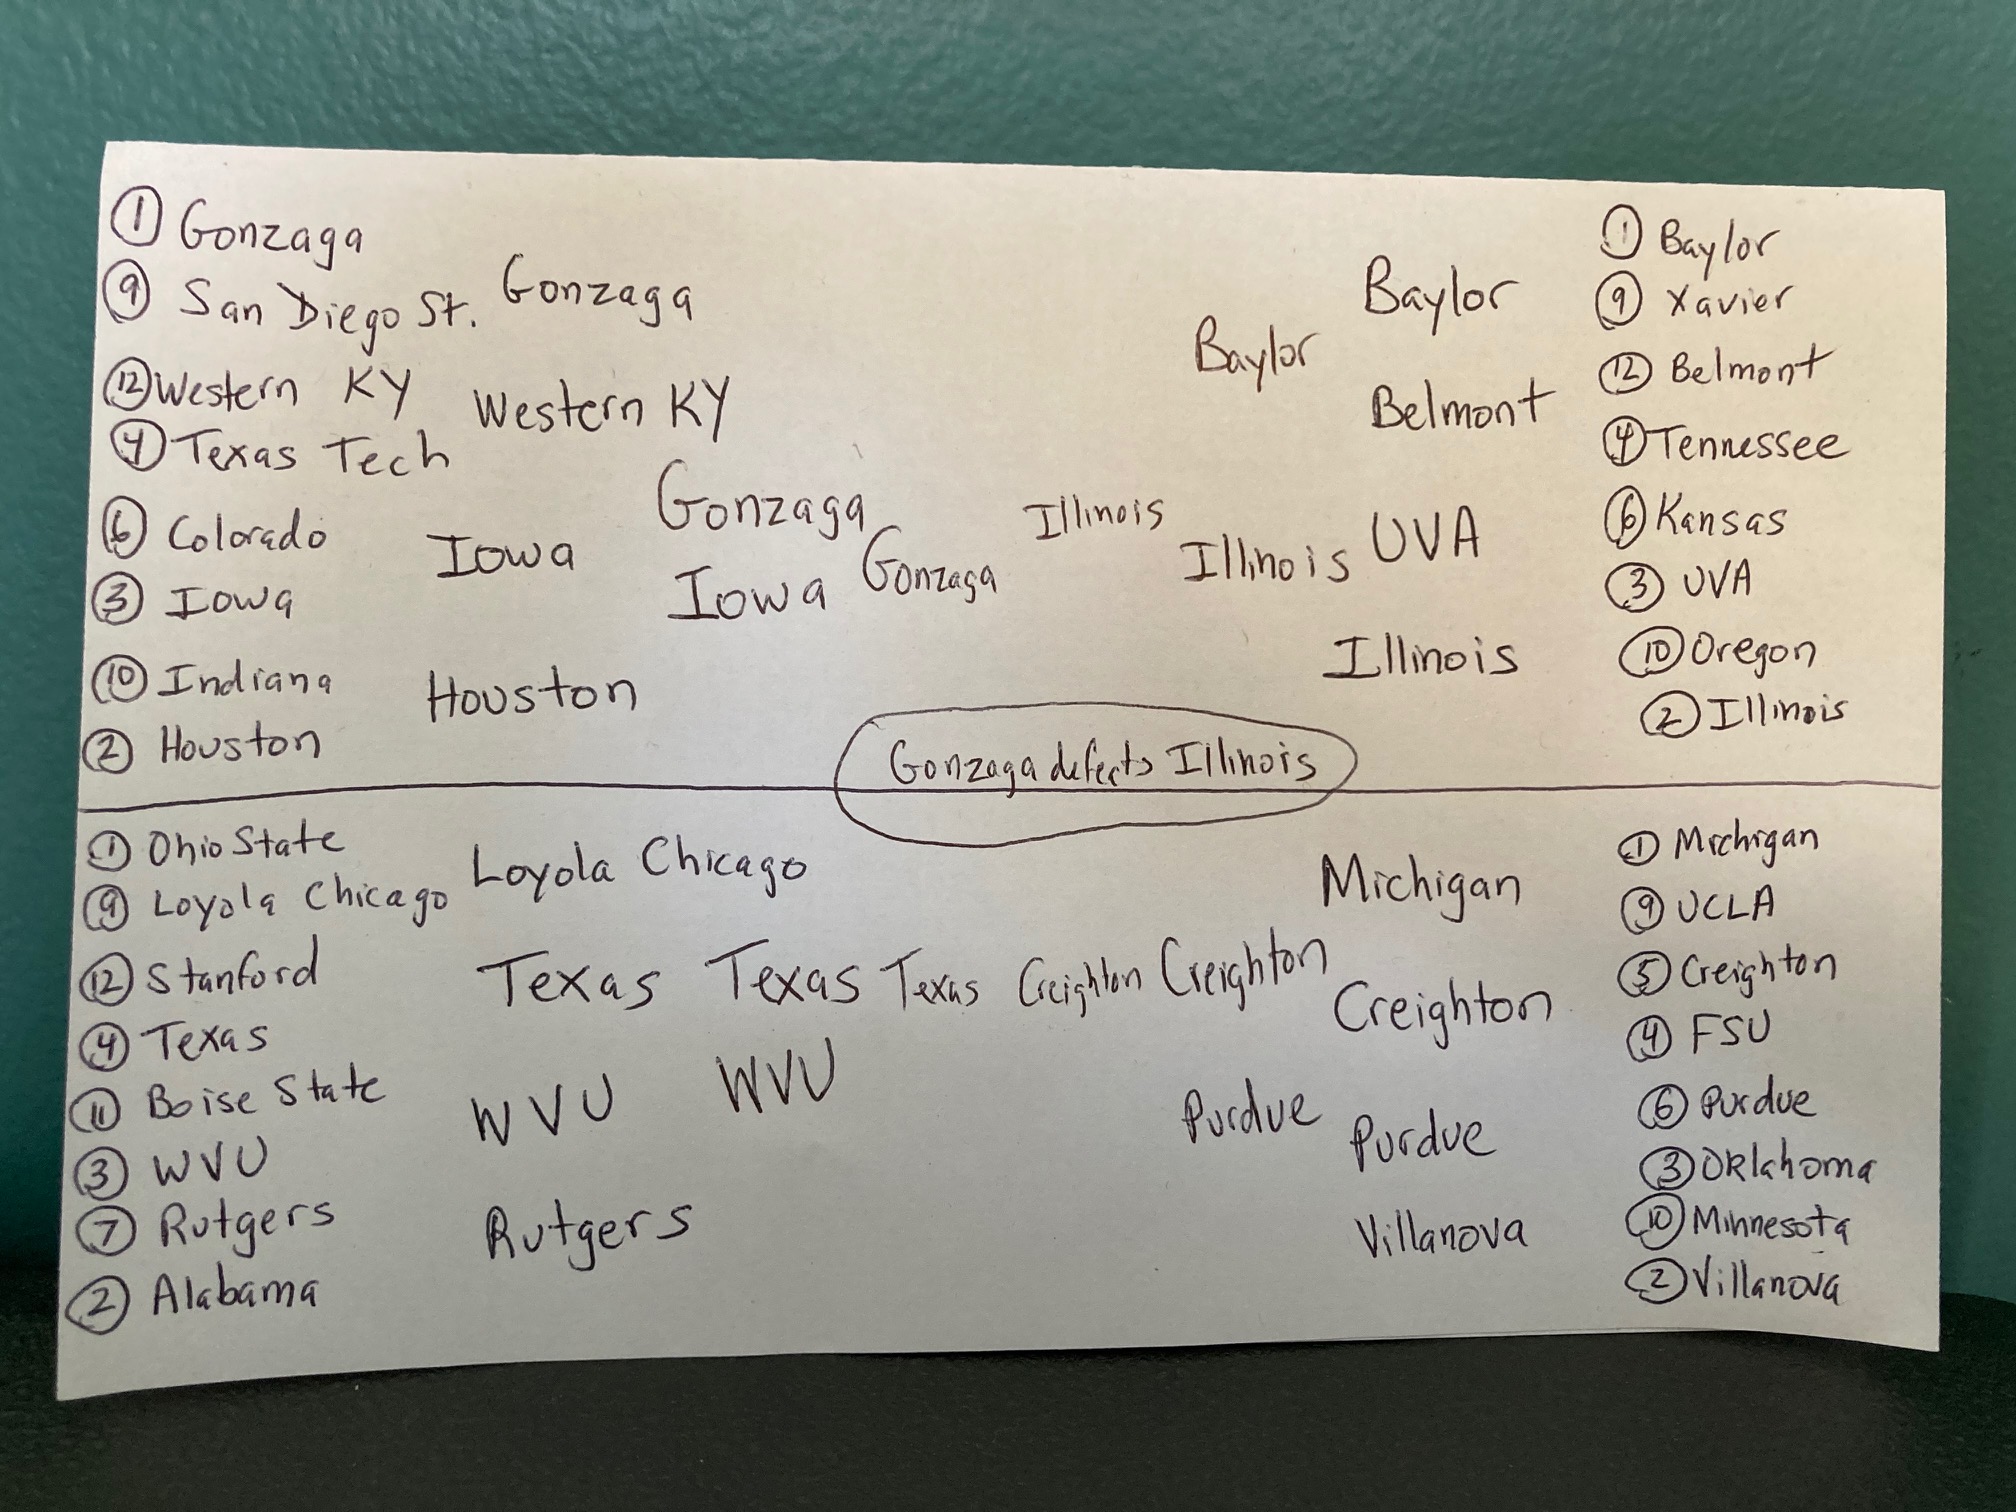 ① Gonzaga
⑨ San Diego St.
⑫ Western KY
④ Texas Tech
⑥ Colorado
③ Iowa
⑩ Indiana
② Houston
Gonzaga
Western KY
Iowa
Houston
Gonzaga
Iowa
Gonzaga
Illinois
Baylor
Illinois
Baylor
Belmont
UVA
Illinois
① Baylor
⑨ Xavier
⑫ Belmont
④ Tennessee
⑥ Kansas
③ UVA
⑩ Oregon
② Illinois
Gonzaga defects Illinois
① Ohio State
⑨ Loyola Chicago
⑫ Stanford
④ Texas
⑪ Boise State
③ WVU
⑦ Rutgers
② Alabama
Loyola Chicago
Texas
WVU
Rutgers
Texas
WVU
Texas
Creighton
Creighton
Purdue
Michigan
Creighton
Purdue
Villanova
① Michigan
⑨ UCLA
⑤ Creighton
④ FSU
⑥ Purdue
③ Oklahoma
⑩ Minnesota
② Villanova